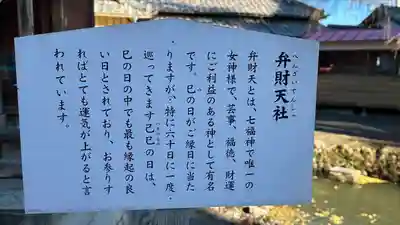 弁財天社
べんざいてんしゃ
弁財天とは、七福神で唯一の
女神様で、芸事、福徳、財運
にご利益のある神として有名
です。巳の日がご縁日に当た
りますが、特に六十日に一度
巡ってきます己巳の日は、
巳の日の中でも最も縁起の良
い日とされており、お参りす
ればとても運気が上がると言
われています。